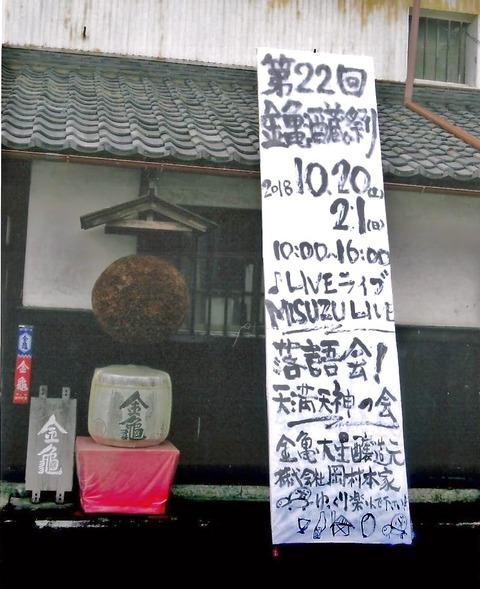 第22回
金亀酒蔵の祭り
2018 10.20(土)
21(日)
10:00~16:00
♪LIVEライブ
MISUZU LIVE
落語会!
天満天神の会
金亀 大星醸造元
株式会社岡村本家
ゆっくり楽しんで下さい!
金亀
金龜
金龜